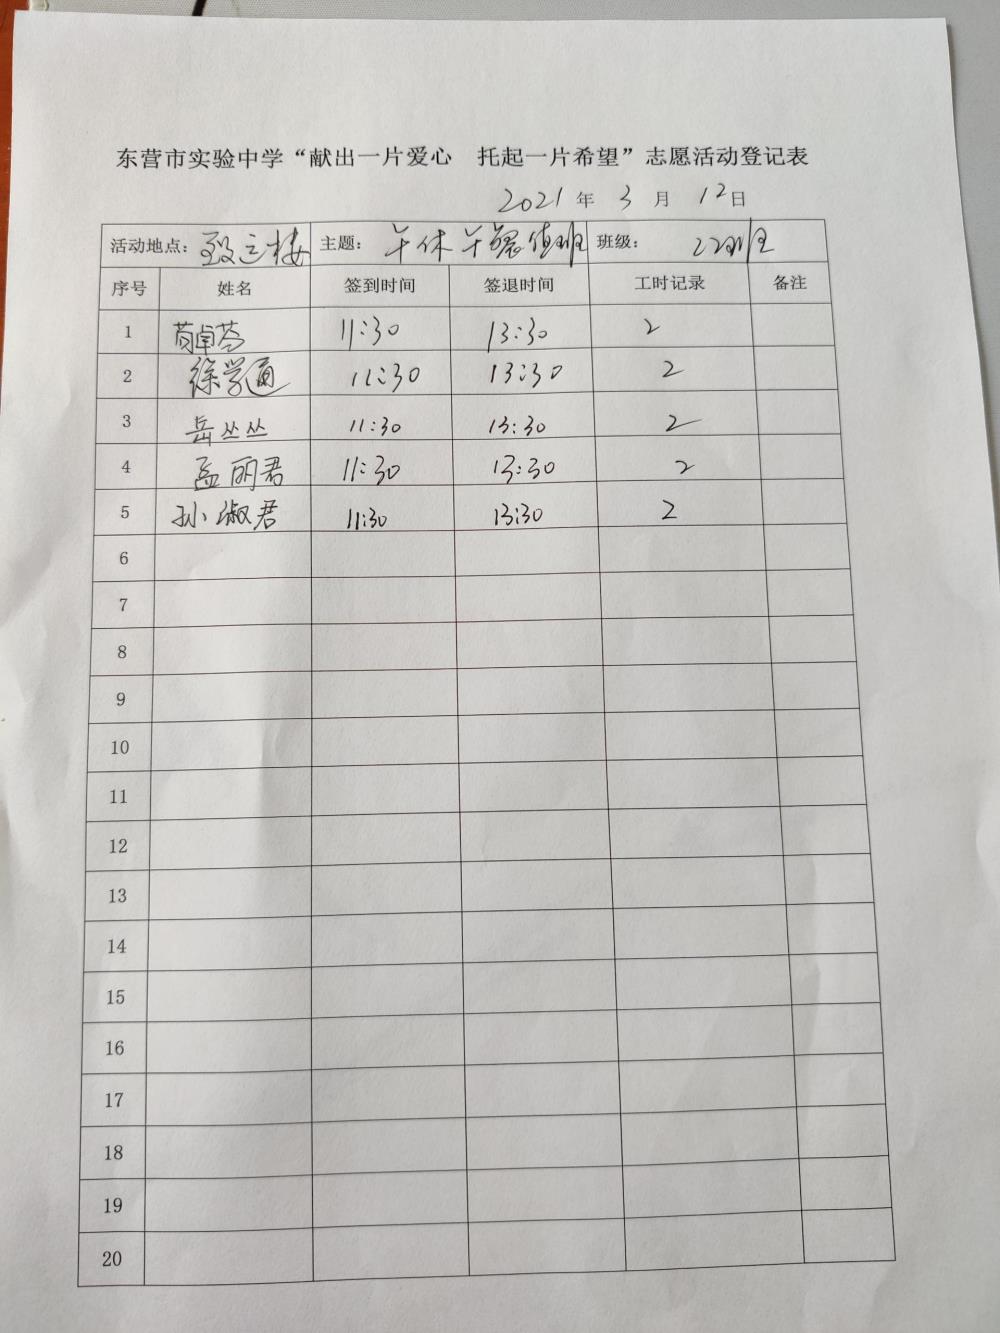 东营市实验中学“献出一片爱心 托起一片希望”志愿活动登记表
2021年3月12日
活动地点：致远楼 主题：午休午餐值班 班级：22班
序号 姓名 签到时间 签退时间 工时记录 备注
1 苟卓芩 11:30 13:30 2
2 徐学通 11:30 13:30 2
3 岳丛丛 11:30 13:30 2
4 孟丽君 11:30 13:30 2
5 孙淑君 11:30 13:30 2
6
7
8
9
10
11
12
13
14
15
16
17
18
19
20